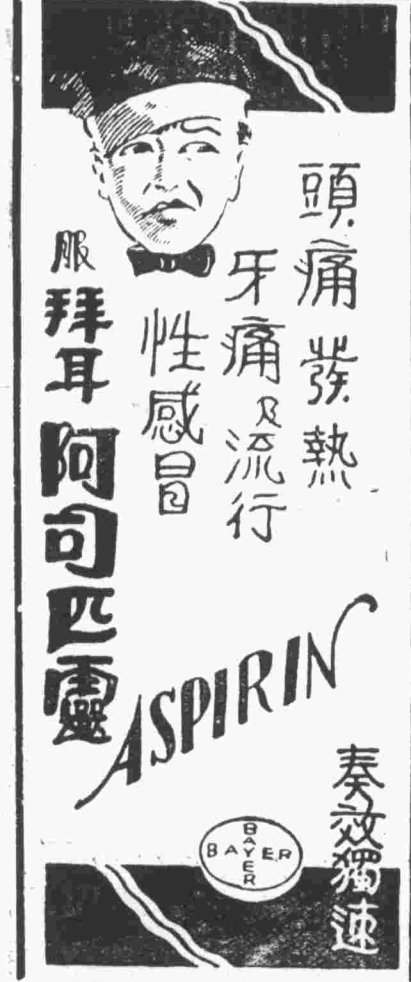 頭痛 發熱
牙痛及流行
性感冒
服拜耳阿司匹靈
ASPIRIN
奏效獨速
BAYER
BAYER